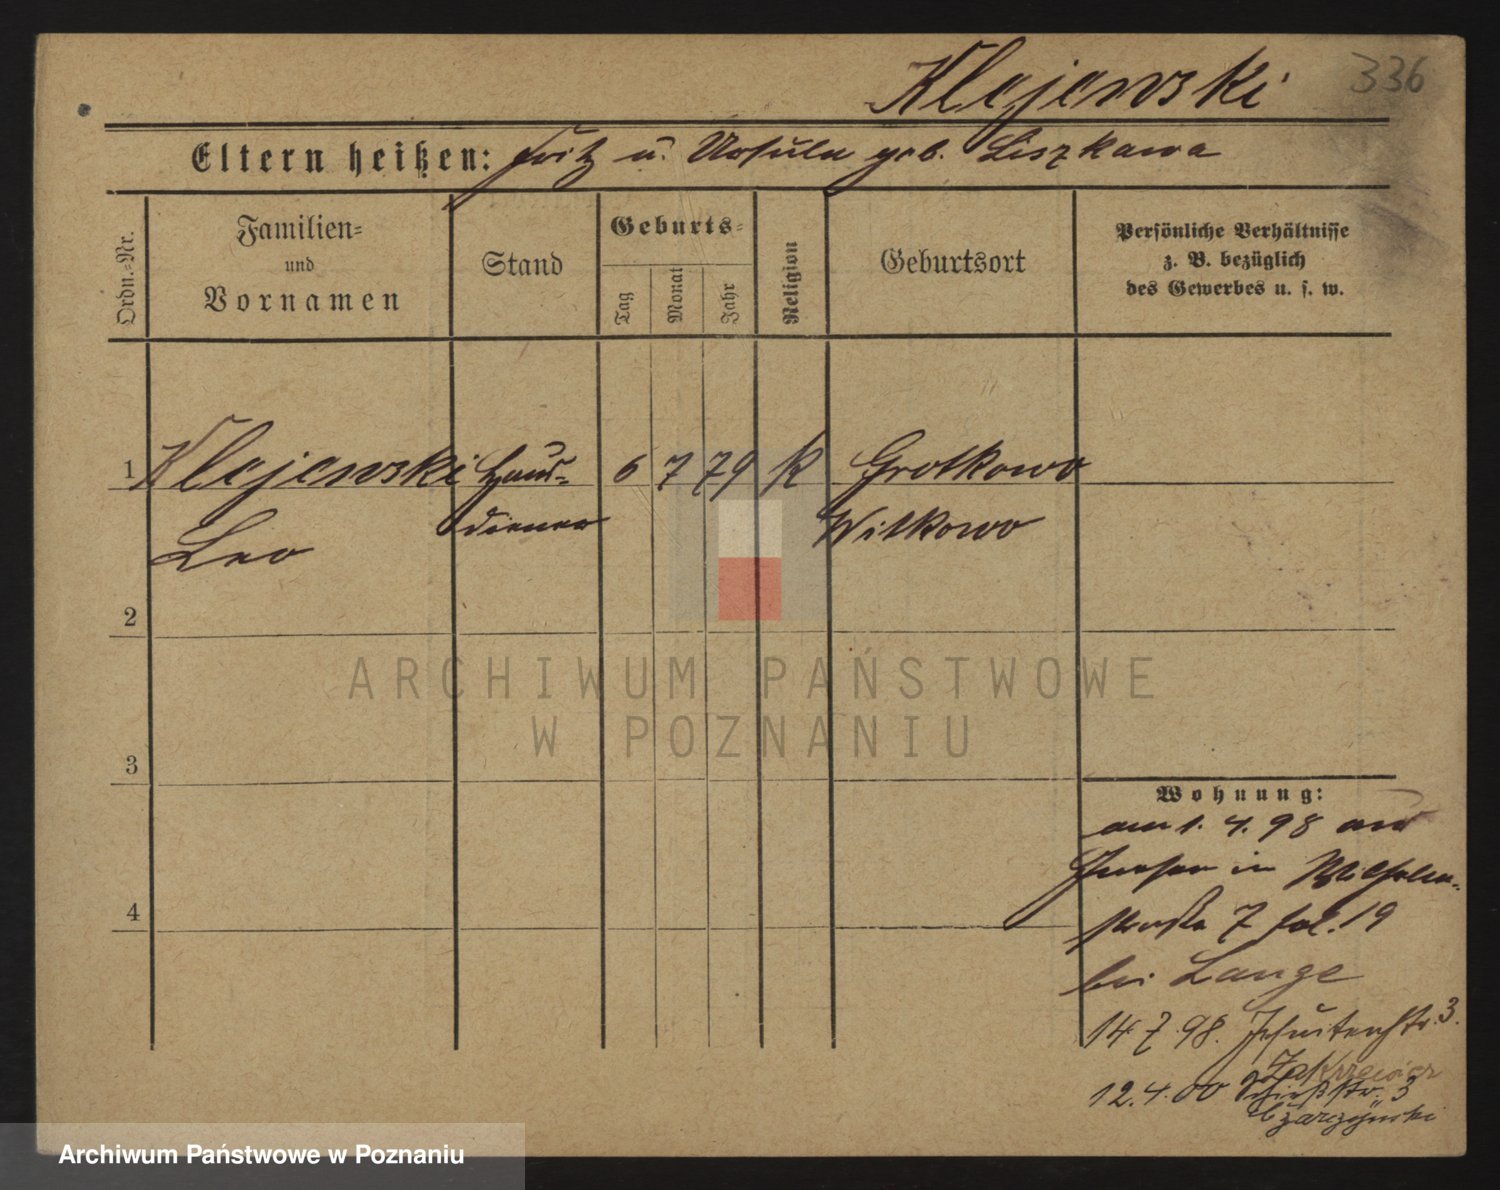 Klejewski 336
Eltern heißen: Fritz u. Ursula geb. Liszkawa
Ordn.-Nr.
Familien-
und
Vornamen
Stand
Geburts-
Tag
Monat
Jahr
Religion
Geburtsort
Persönliche Verhältnisse
z. B. bezüglich
des Gewerbes u. s. w.
1 Klejewski Haus- 6 7 79 K Grotkowo
Leo diener Witkowo
2
3
4
Wohnung:
am 1. 4. 98 aus
in Wilhelm-
straße 7 bei
Lange
14 7 98. Jesuitenstr. 3.
12. 4. 00 3
ARCHIWUM PAŃSTWOWE
W POZNANIU
Archiwum Państwowe w Poznaniu